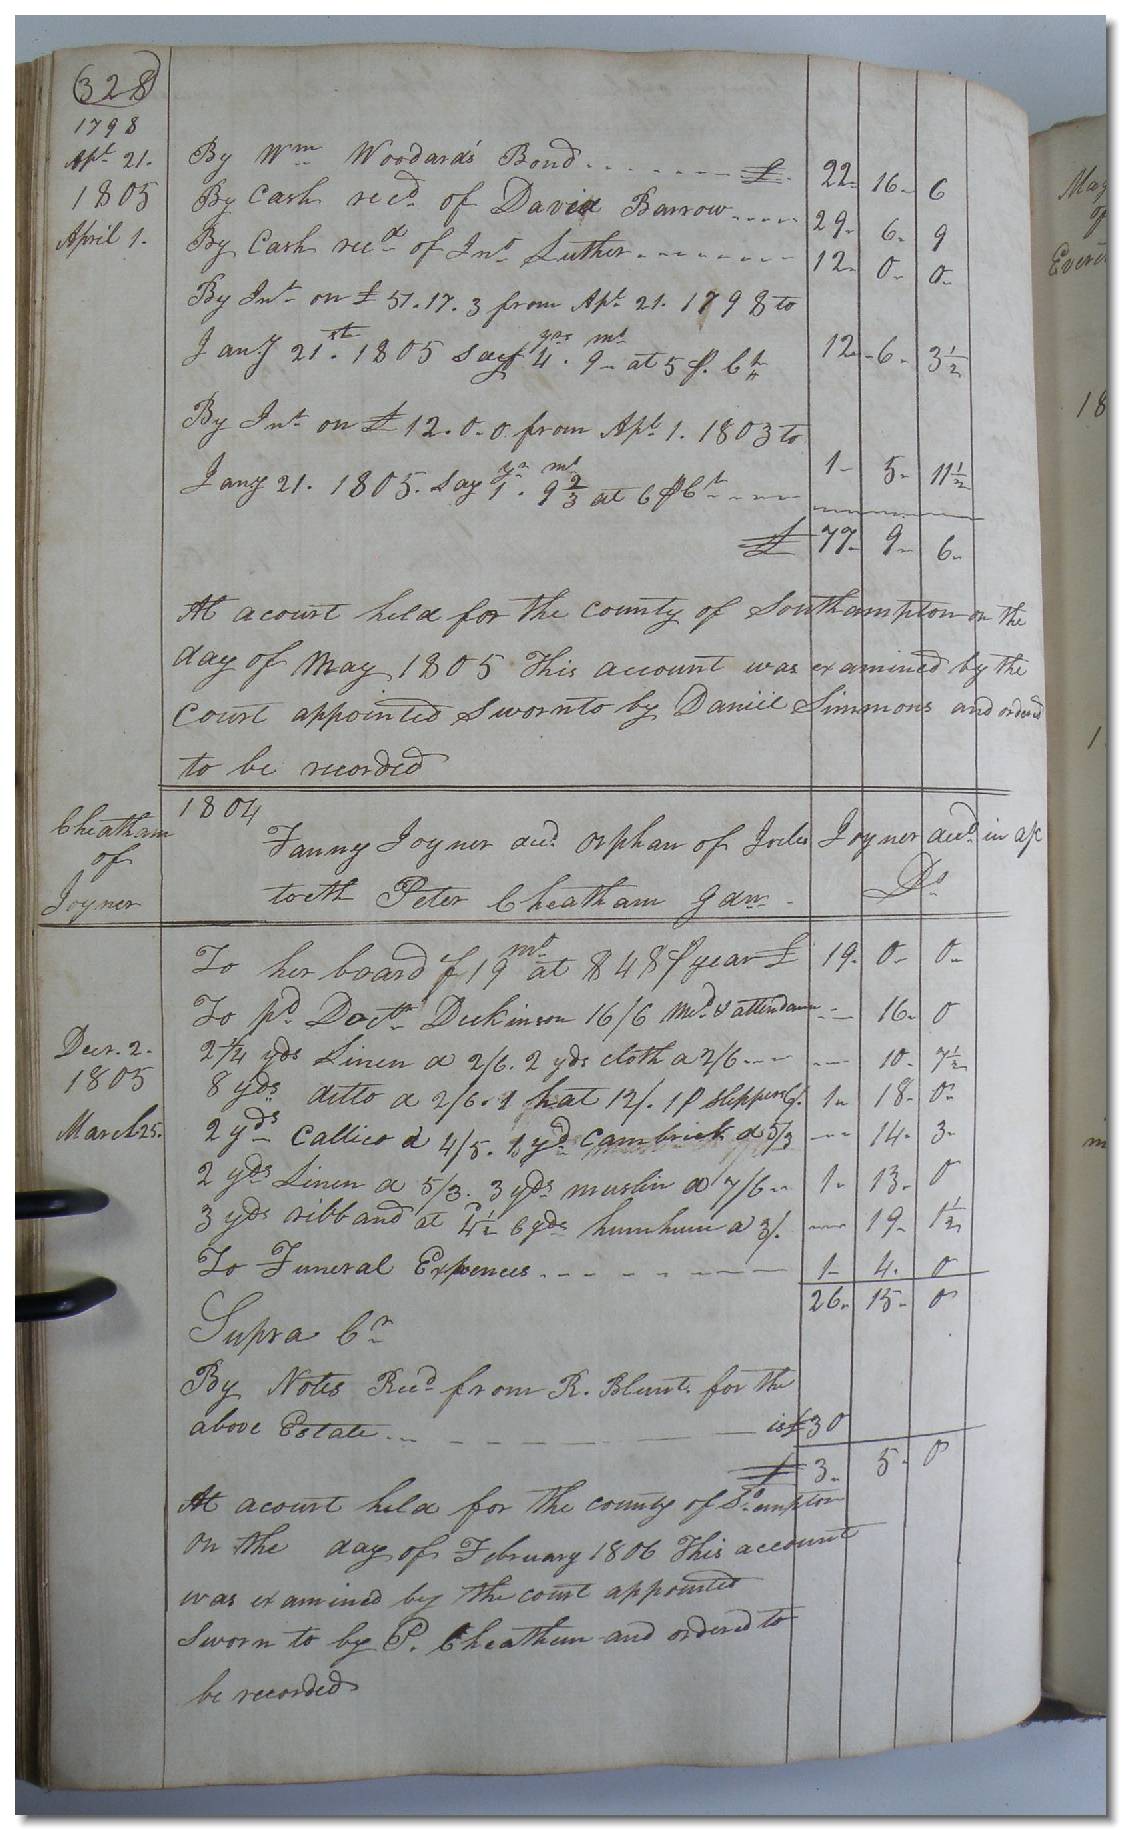 (328)
1798
Apl. 21. By Wm Woodard's Bond £ 22 - 16 - 6
1805 By Cash recd. of David Barrow 29 - 6 - 9
April 1. By Cash recd of Jno Luther 12 - 0 - 0
By Int. on £ 51.17.3 from Apl. 21. 1798 to
Jany 21st. 1805 say 4 yrs. 9 ms at 5 p. Ct 12 - 6 - 3 1/2
By Int. on £ 12.0.0 from Apl. 1. 1803 to
Jany 21. 1805. say 1 yr. 9 2/3 ms at 6 p Ct 1 - 5 - 11 1/2
£ 77 - 9 - 6
At a court held for the county of Southampton on the
day of May 1805 This account was examined by the
Court appointed Sworn to by Daniel Simmons and ordered
to be recorded
1804
Cheatham Fanny Joyner decd. Orphan of Joyner decd. in a/c
of
Joyner with Peter Cheatham gdn. Dr
To her board f 19 ms at $48 p year £ 19 - 0 - 0
To pd. Doctr Dickinson 16/6 Med. & attendance 16 - 0
Decr. 2. 2 1/4 yds Linen a 2/6. 2 yds cloth a 2/6 10 - 7 1/2
1805 8 yds ditto a 2/6. 1 hat 12/. 1 p slippers 6/. 1 - 18 - 0
March 25. 2 yds Callico a 4/5. 1 yd Cambrick a 5/3 14 - 3
2 yds Linen a 5/3. 3 yds muslin a 7/6 1 - 13 - 0
3 yds ribband at 4 1/2 6 yds humhum a 3/. 19 - 1 1/2
To Funeral Expences 1 - 4 - 0
26 - 15 - 0
Supra Cr
By Notes Recd. from R. Blunt. for the
above Estate is £ 30
£ 3 - 5 - 0
At a court held for the county of So.ampton
on the day of February 1806 This account
was examined by the court appointed
Sworn to by P. Cheatham and ordered to
be recorded